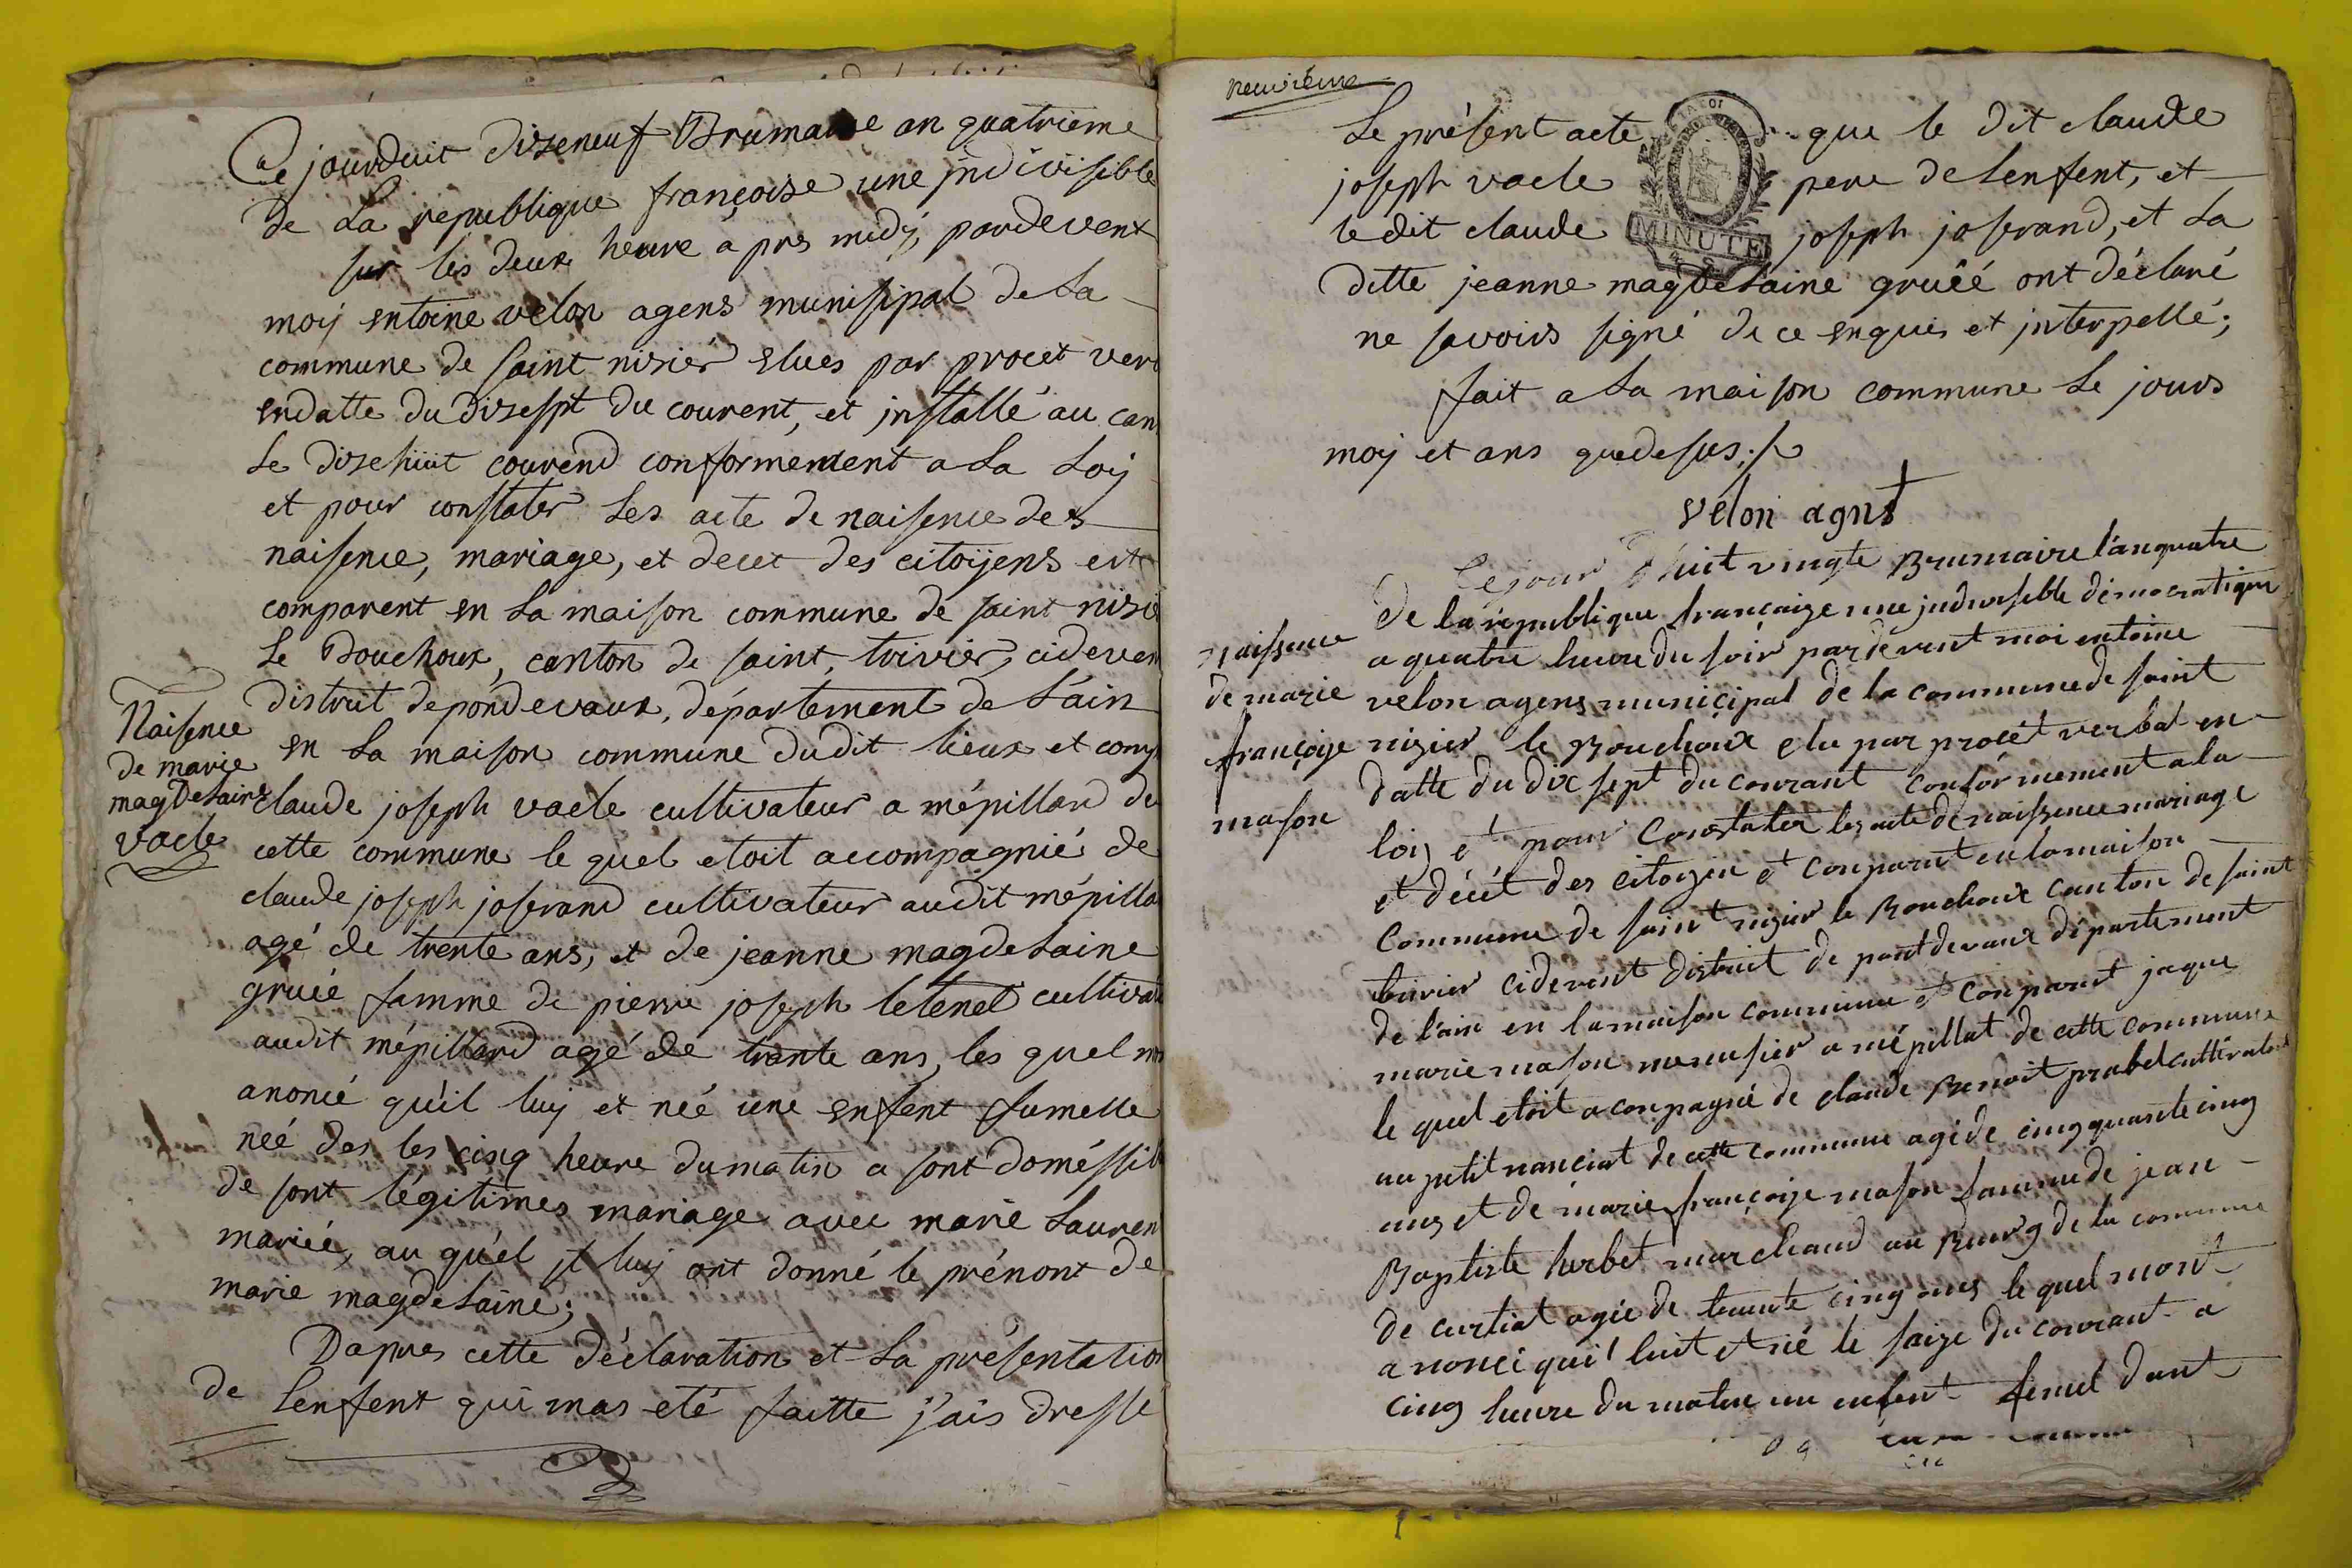 Ce jourduit dizeneuf Brumaire an quatrieme
de La republique françoise une jndivisible
sur les deux heure a prs midÿ, pardevent
moÿ entoine velon agens munisipal de La
commune de saint nisier elues par procet ver
endatte du dizespt du courent, et jnstallé au can
Le dizehuit courend conformément a La Loÿ
et pour constater Les acte de naisence des
naisence, mariage, et decet des citoÿens est
comparent en La maison commune de saint nisi
Le Bouchoux, canton de saint, trivier, cideven
district de pondevaux, département de L'ain
en La maison commune dudit lieux et comp
Naisence
de marie
magdelaine
vacle
claude joseph vacle cultivateur a mépilland de
cette commune le quel etoit accompagnié de
claude joseph joserand cultivateur audit mépilla
agé de trente ans, et de jeanne magdelaine
gruéé famme de pierre joseph letenet cultivat
audit mépilland agé de trante ans, les quel
anoncé qu'il luÿ et néé une enfent fumelle
néé des les cinq heure dumatin a sont doméssil
de sont légitimes mariage avec marie Lauren
mariéé, au qu'el jl luÿ ont donné le prénont de
marie magdelaine;
Dapres cette déclaration et La présentation
de Lenfent qui mas eté faitte j'ais dressé
neuvième
Le présent acte que le dit claude
joseph vacle pere de Lenfent, et
le dit claude joseph joserand, et La
ditte jeanne magdelaine gruéé ont déclaré
ne savoirs signé de ce enquis et jnterpellé;
fait a La maison commune Le jours
moÿ et ans quedesus;
MINUTE
velon agnt
Cejour d'huit vingte Brumaire l'an quatre
de la republique françaize une jndivisible démocratique
a quatre heure du soir pardevent moi entoine
velon agens municipal de la commune de saint
nizier le Bouchoux elu par procét verbal en
datte du dix sept du courant conformement a la
loi, et pour Constater les acte de naissence mariage
et décét des citoyen et conparut en la maison
Commune de saint nizier le Bouchoux canton de saint
trivier cidevent district de pontdevaux département
de l'ain en la maison commune et conparut jaque
marie mason menusier a mépillat de cette commune
le quel etoit aconpagné de claude Benoit probel cultivateur
au petit nanciat de cette commune agé de cinqquante cinq
ans et de marie françoize mason famme de jean
Baptiste herbet marchand au Bourg de la commune
de curtiat agée de trante cinq ans le quel mont
anoncé qui'l luit et né le saize du courant a
cinq heure du matin un enfent femel dont
naissence
de marie
françoise
mason